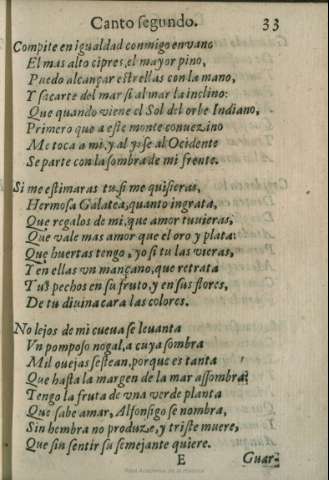 Canto segundo. 33
Compite en igualdad conmigo en vano
El mas alto cipres, el mayor pino,
Puedo alcançar estrellas con la mano,
Y sacarte del mar si al mar la inclino:
Que quando viene el Sol del orbe Indiano,
Primero que a este monte conuezino
Me toca a mi, y al yrse al Ocidente
Se parte con la sombra de mi frente.
Si me estimaras tu, si me quisieras,
Hermosa Galatea, quanto ingrata,
Que regalos de mi, que amor tuuieras,
Que vale mas amor que el oro y plata:
Que huertas tengo, yo si tu las vieras,
Y en ellas vn mançano, que retrata
Tus pechos en su fruto, y en sus flores,
De tu diuina cara las colores.
No lejos de mi cueua se leuanta
Vn pomposo nogal, a cuya sombra
Mil ouejas sestean, porque es tanta
Que hasta la margen de la mar assombra:
Tengo la fruta de vna verde planta
Que sabe amar, Alfonsigo se nombra,
Sin hembra no produze, y triste muere,
Que sin sentir su semejante quiere.
E Guar-